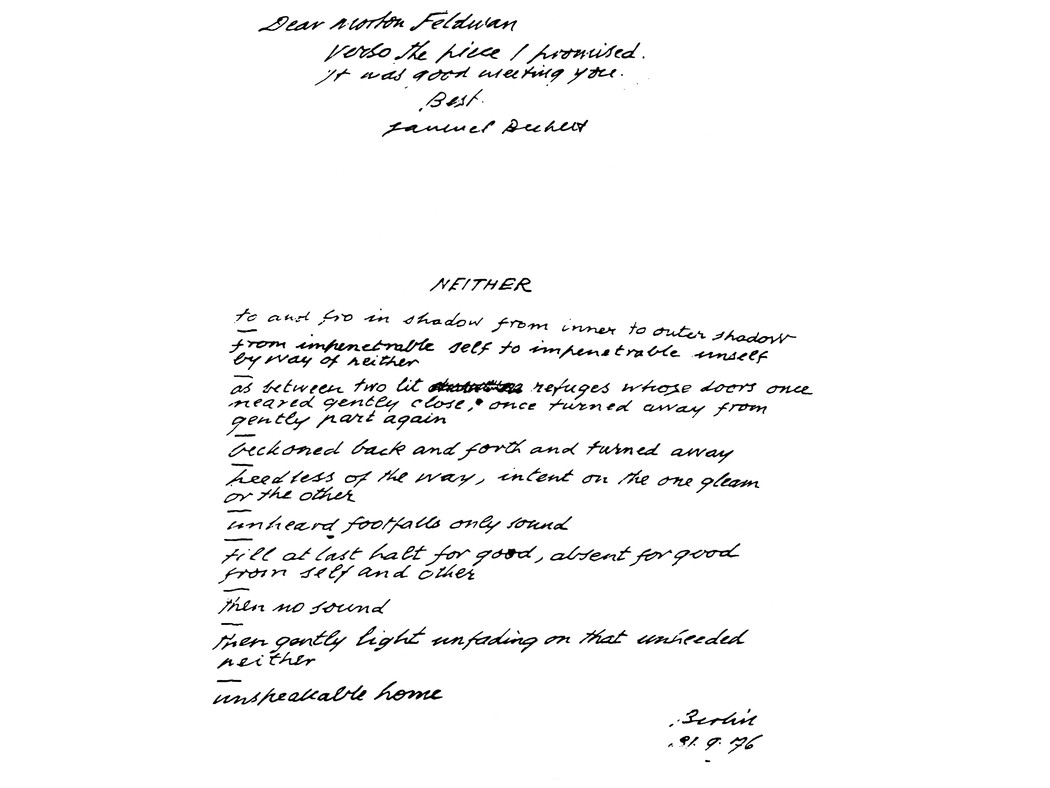 Dear Morton Feldman
Verso the piece I promised.
It was good meeting you.
Best.
Samuel Beckett
NEITHER
to and fro in shadow from inner to outer shadow
from impenetrable self to impenetrable unself
by way of neither
as between two lit refuges whose doors once
neared gently close, once turned away from
gently part again
beckoned back and forth and turned away
heedless of the way, intent on the one gleam
or the other
unheard footfalls only sound
till at last halt for good, absent for good
from self and other
then no sound
then gently light unfading on that unheeded
neither
unspeakable home
Berlin
9. 76